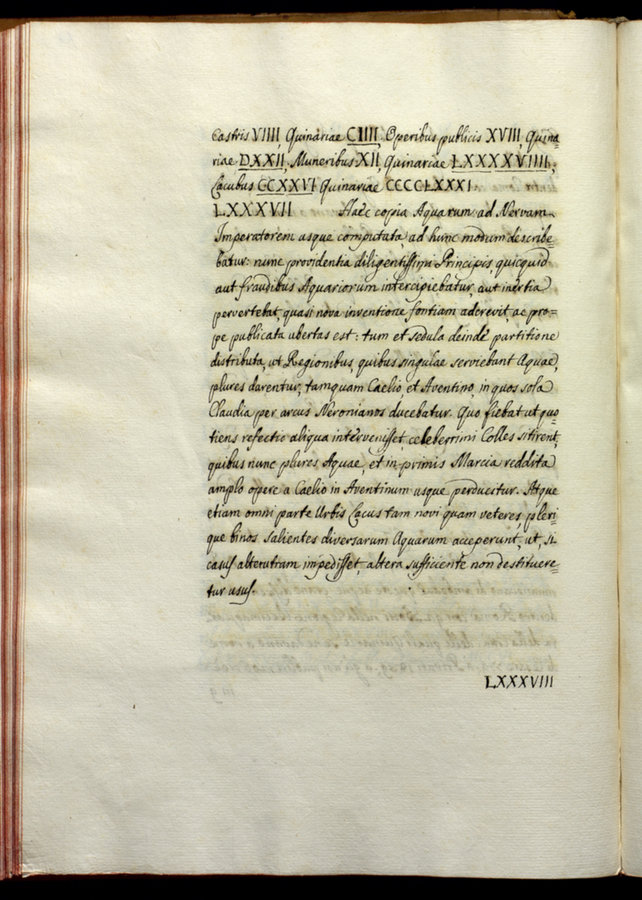 Castris VIIII, Quinariae CIIII. Operibus publicis XVIII Quina=
riae DXXII, Muneribus XII, Quinariae LXXXXVIIII;
Lacubus CCXXVI Quinariae CCCCLXXXI
LXXXVII Haec copia Aquarum ad Nervam
Imperatorem usque computata, ad hunc modum describe=
batur: nunc providentia diligentissimi Principis, quicquid
aut fraudibus Aquariorum intercipiebatur, aut inertia
pervertebat, quasi nova inventione fontium adcrevit, ac pro=
pe publicata ubertas est: tum et sedula deinde partitione
distributa, ut Regionibus, quibus singulae serviebant Aquae,
plures darentur, tamquam Caelio et Aventino, in quos sola
Claudia per arcus Neronianos ducebatur. Quo fiebat ut quo
tiens refectio aliqua intervenisset, celeberrimi Colles sitirent,
quibus nunc plures Aquae, et in primis Marcia reddita
amplo opere a Caelio in Aventinum usque perducitur. Atque
etiam omni parte Urbis Lacus tam novi quam veteres, pleri
que binos salientes diversarum Aquarum acceperunt, ut, si
casus alterutram impedisset, altera sufficiente non destituere=
tur usus.
LXXXVIII